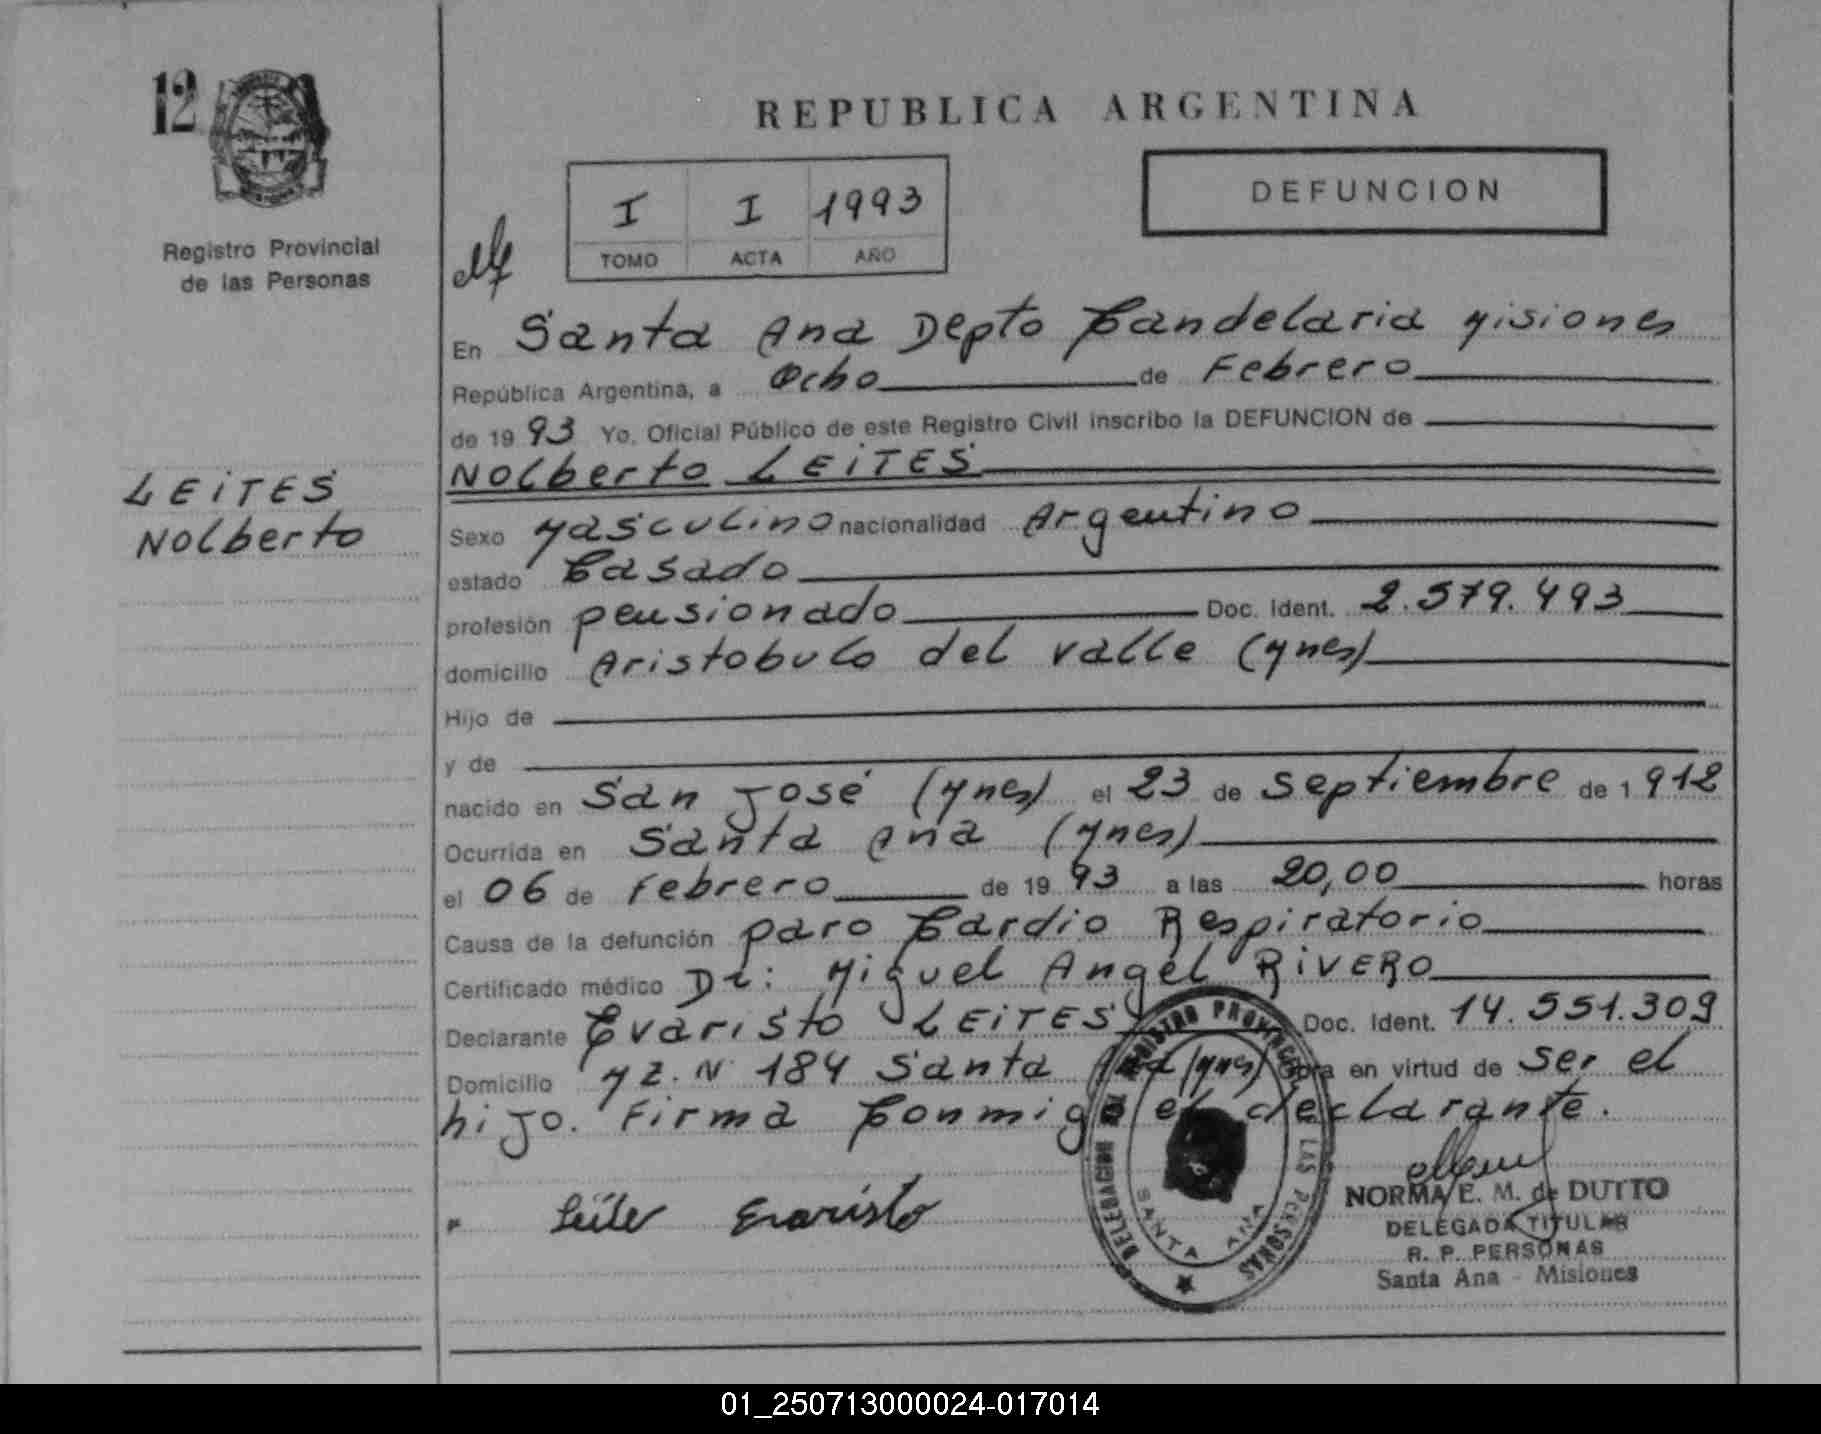 12
Registro Provincial
de las Personas
LEiTES
Nolberto
REPUBLICA ARGENTINA
I I 1993
TOMO ACTA AÑO
DEFUNCION
En Santa Ana Depto Candelaria Misiones
República Argentina, a Ocho de Febrero
de 1993 Yo, Oficial Público de este Registro Civil inscribo la DEFUNCION de
Nolberto LEiTES
Sexo Masculino nacionalidad Argentino
estado Casado
profesión pensionado Doc. Ident. 2.579.493
domicilio Aristobulo del Valle (Mnes)
Hijo de
y de
nacido en San José (Mnes) el 23 de Septiembre de 1912
Ocurrida en Santa Ana (Mnes)
el 06 de Febrero de 1993 a las 20,00 horas
Causa de la defunción paro Cardio Respiratorio
Certificado médico Dr: Miguel Angel RiVERO
Declarante Evaristo LEiTES Doc. Ident. 14.551.309
Domicilio MZ. N 184 Santa Ana (Mnes) obra en virtud de Ser el
hijo. Firma Conmigo el declarante.
Leite Evaristo
DELEGACION DEL REGISTRO PROVINCIAL DE LAS PERSONAS
SANTA ANA
NORMA E. M. de DUTTO
DELEGADA TITULAR
R. P. PERSONAS
Santa Ana - Misiones
01_250713000024-017014